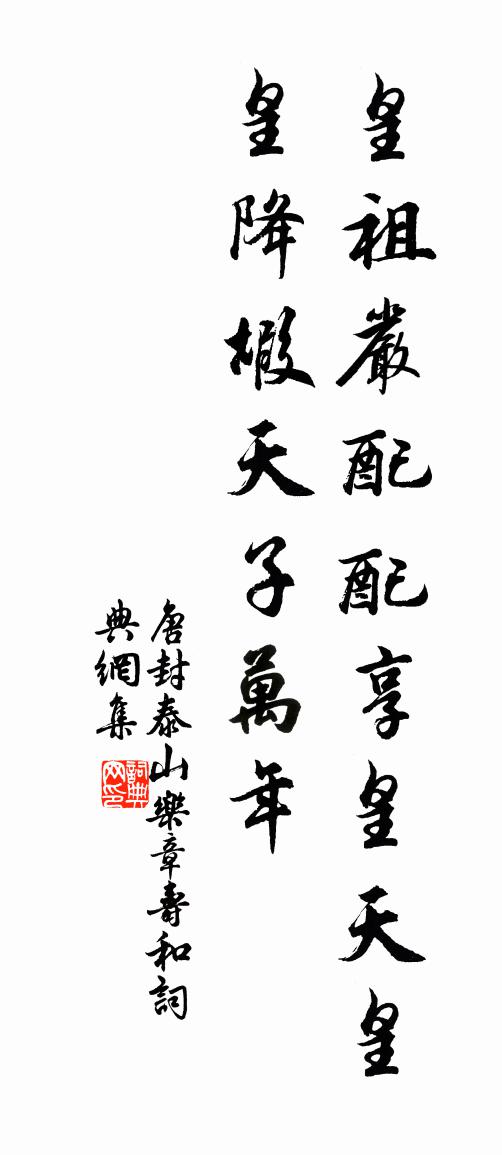 皇祖嚴配配享皇天皇
皇降椵天子萬年
唐封泰山樂章壽和詞
典網集
詞典網印